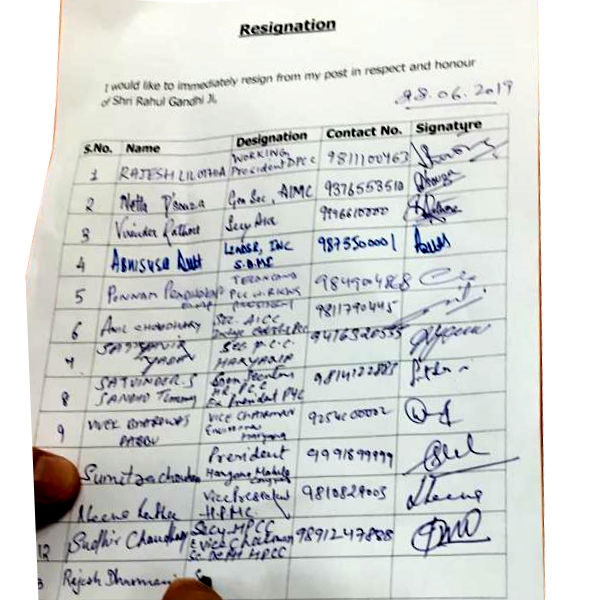 Resignation
I would like to immediately resign from my post in respect and honour
of Shri Rahul Gandhi Ji,
28.06.2019
S.No. Name Designation Contact No. Signature
1 RAJESH LILOTHIA WORKING President DPCC 9811100463
2 Netta D'souza Gen Sec, AIMC 9376553510
3 Virender Rathore Secy AICC 9996610000
4 Abhishek Dutt LEADER, INC 9873550001
5 PONNAM TELANGANA PCC W.RKING PRESIDENT
6 ANIL CHOWDHARY Sec. AICC 9811790445
7 SATYAVIR YADAV Sec. P.C.C. HARYANA
8 SATVINDER.S SANDHU Timmy HR PCC Ex President PYC
9 VIVEK VICE CHAIRMAN Haryana 9254000002
Sumitra chouhan President Haryana Mahila Congress 9991899999
Vice President 9810829003
H.P.M.C.
12 Sudhir Chaudhary Secy HPCC 9891247888
E Vice Chairman
SC DEPtt HPCC
3 Rajesh Dharmani S